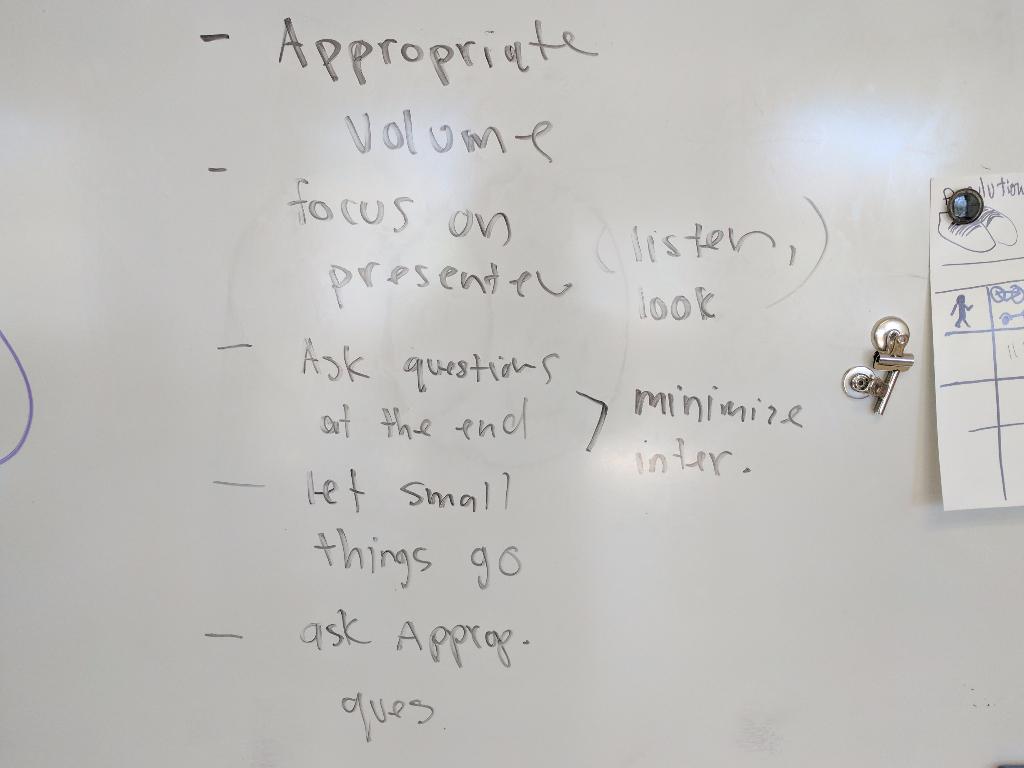 - Appropriate
volume
- focus on
presenter (listen,
look)
- Ask questions
at the end > minimize
inter.
- let small
things go
- ask Approp.
ques